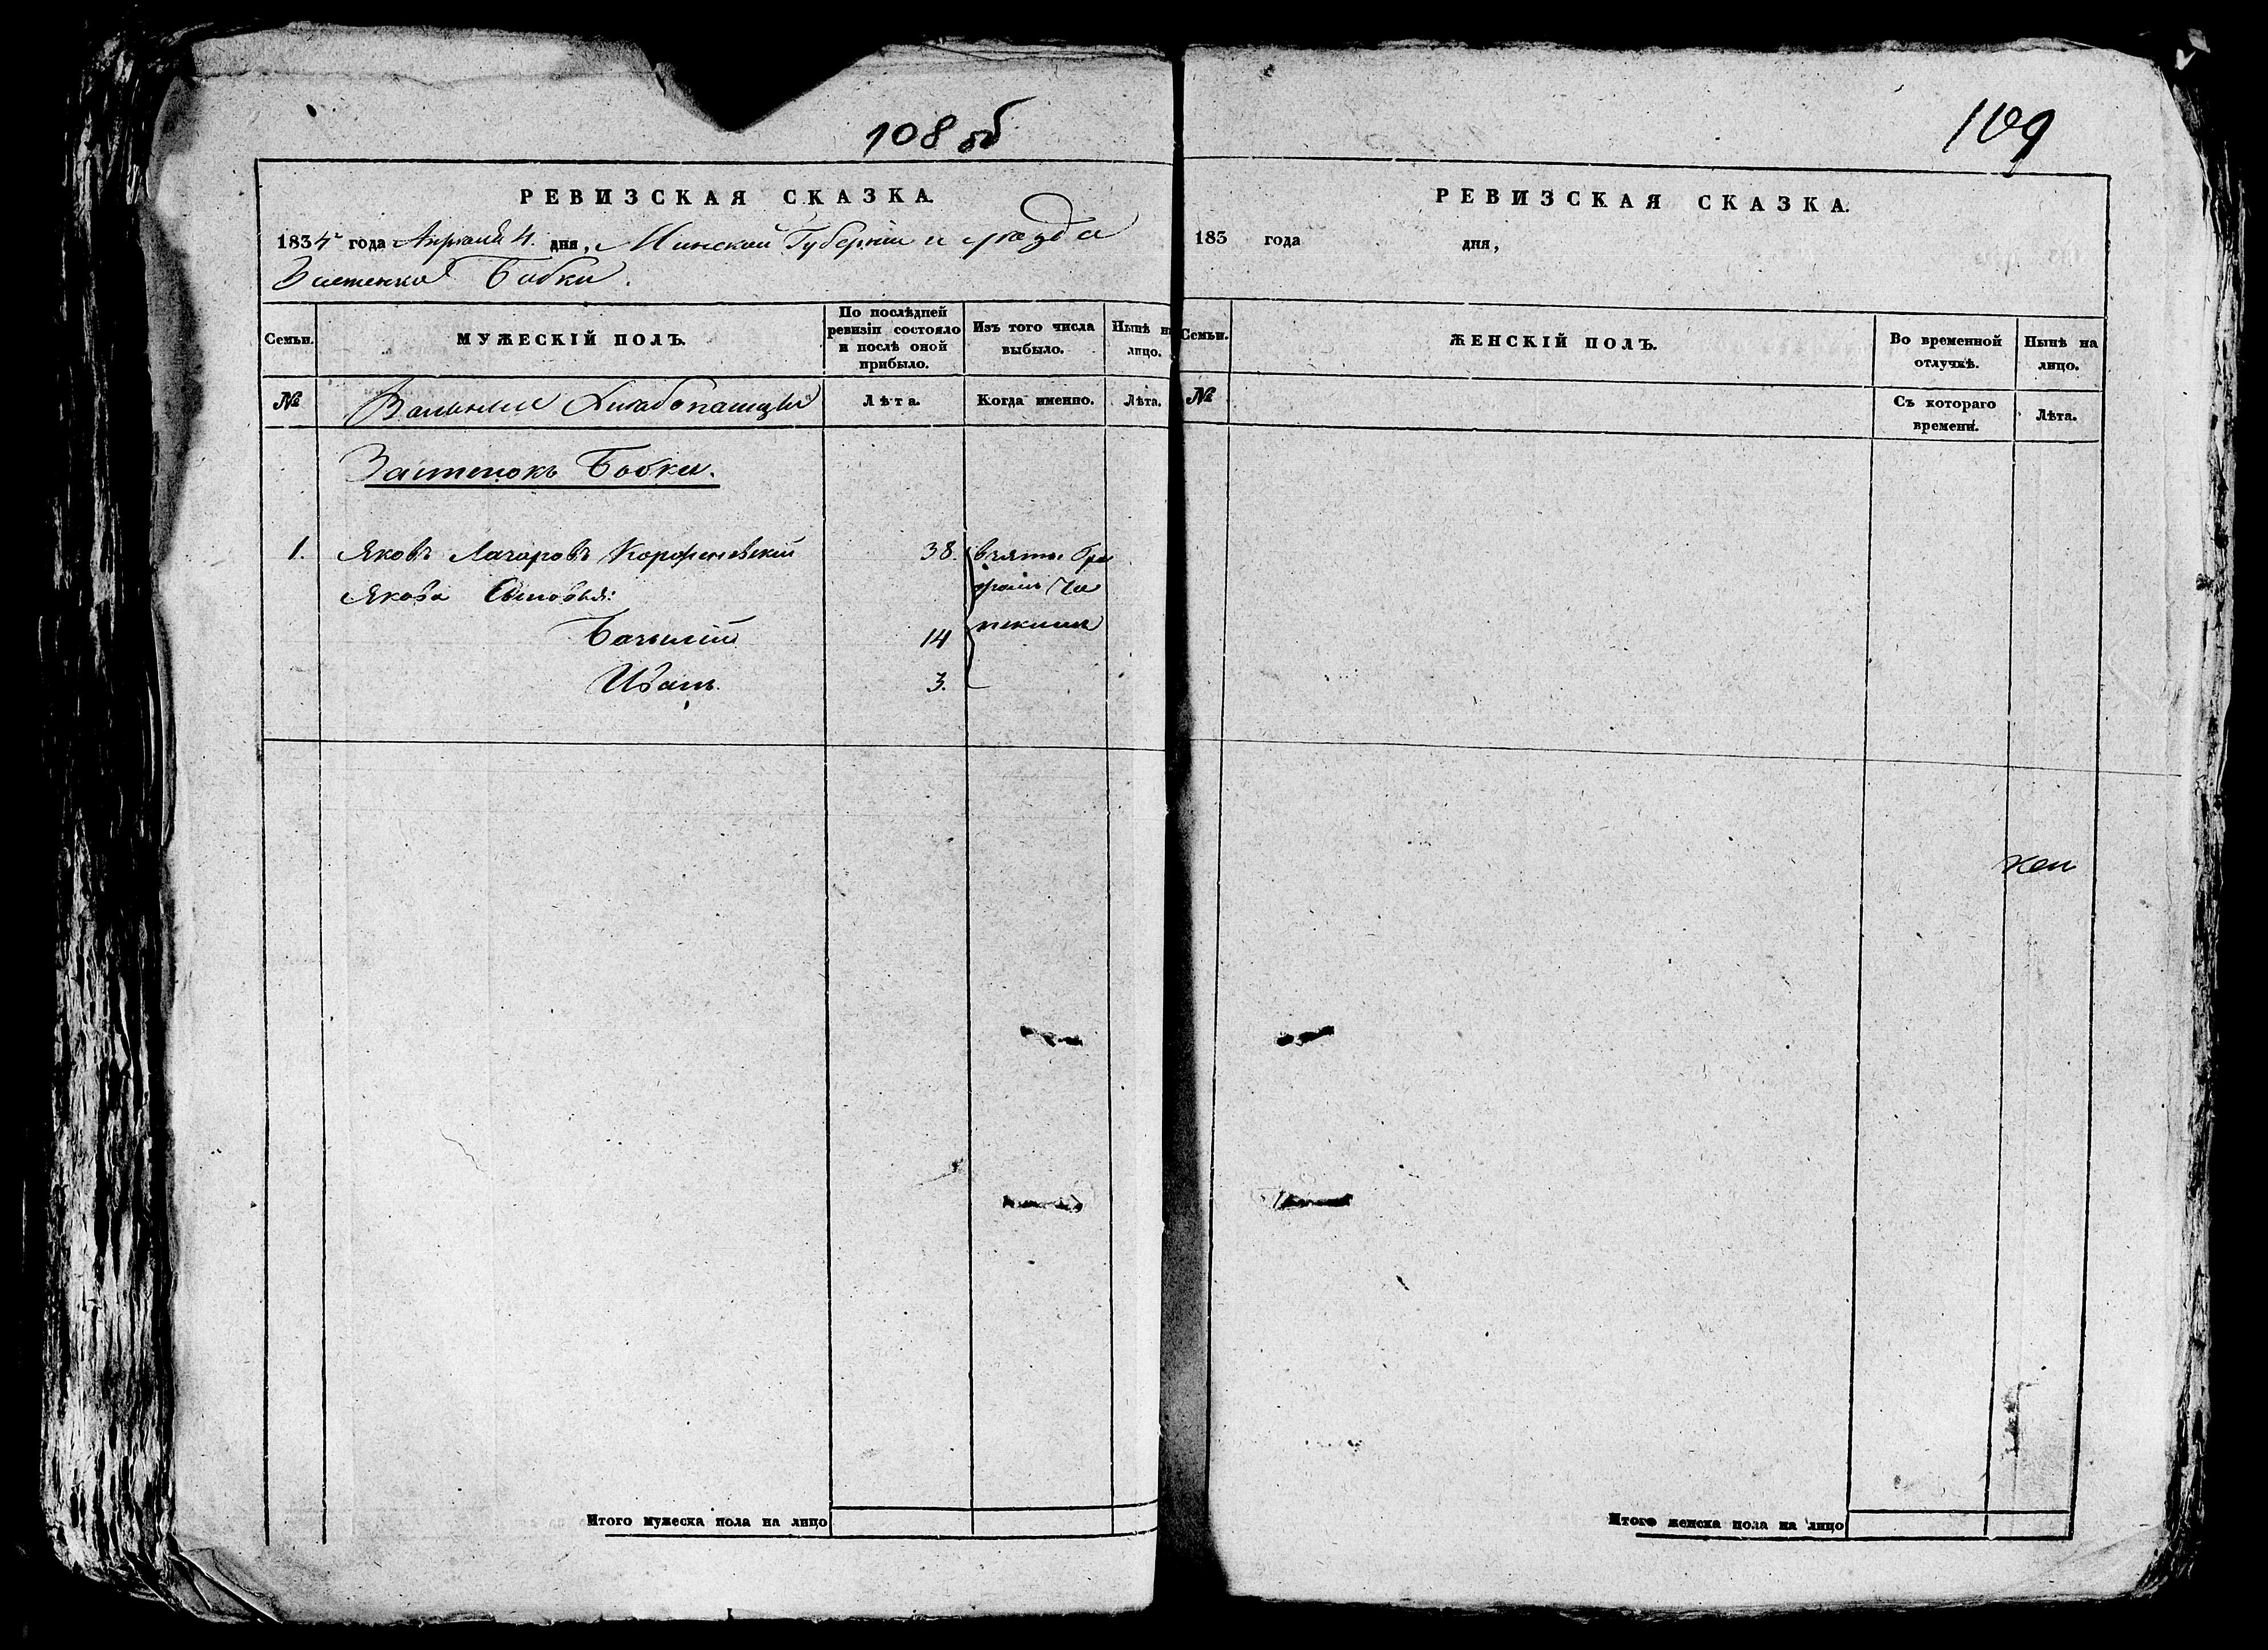 108 об
РЕВИЗСКАЯ СКАЗКА.
1834 года Апреля 4. дня, Минской Губерніи и уезда
Застенка Бобки.
Семьи.
МУЖЕСКІЙ ПОЛЪ.
По послѣдней ревизіи состояло и послѣ оной прибыло.
Изъ того числа выбыло.
Нынѣ на лицо.
№
Вольныи Хлебопашцы
Лѣта.
Когда именно.
Лѣта.
Застенокъ Бобки.
1. Яковъ Лазаровъ 38. взяты Гра
Якова Сыновья: фомъ Ча
14 пскимъ
Иванъ. 3.
Итого мужеска пола на лицо
109
РЕВИЗСКАЯ СКАЗКА.
183 года дня,
Семьи.
ЖЕНСКІЙ ПОЛЪ.
Во временной отлучкѣ.
Нынѣ на лицо.
№
Съ котораго времени.
Лѣта.
Итого женска пола на лицо